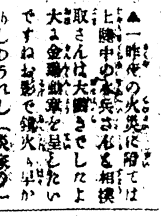 ▲一昨夜の火災に際ては
上陸中の水兵さんと相撲
取さんは大働きでしたよ
大きな金鵄勲章を呈したい
ですねお影で鎮火も早か